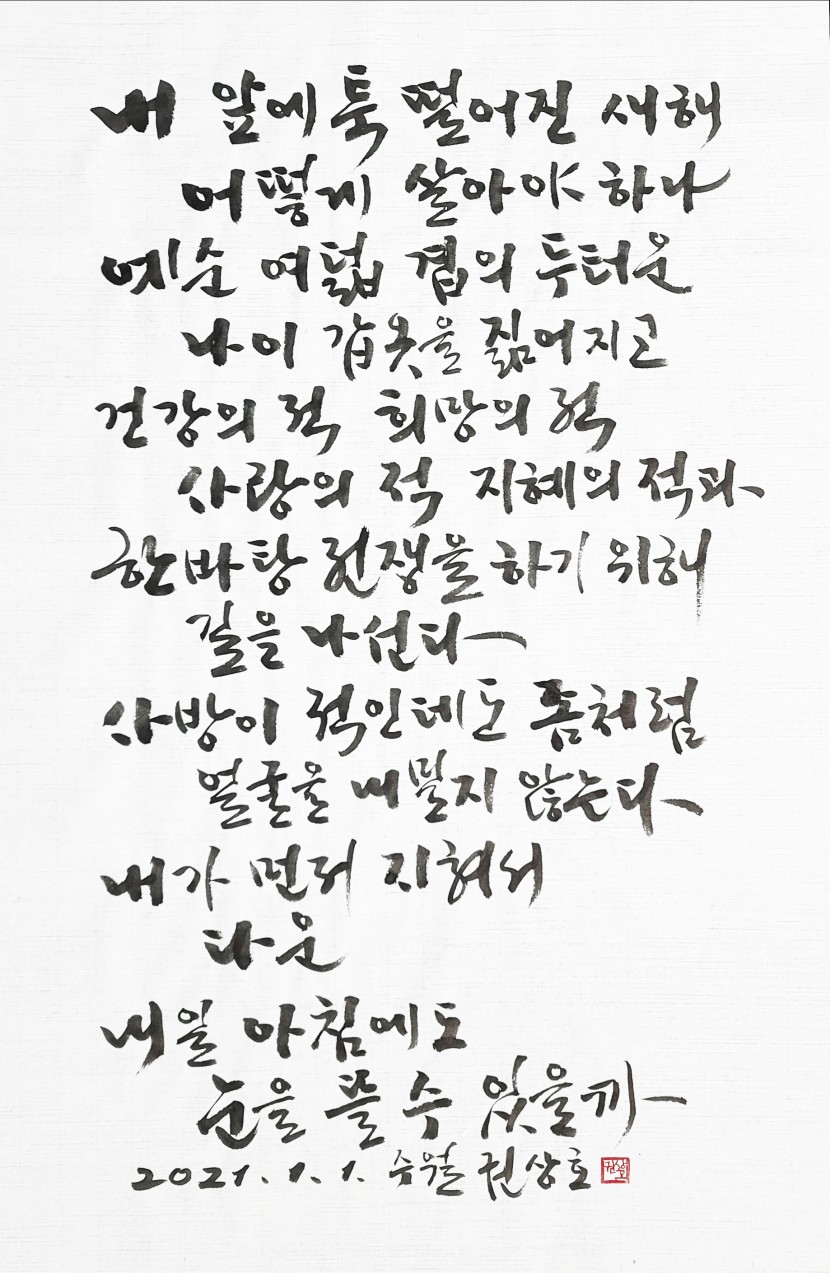 내 앞에 툭 떨어진 새해
어떻게 살아야 하나
예순 여덟 겹의 두터운
나이 갑옷을 짊어지고
건강의 적 희망의 적
사랑의 적 지혜의 적과
한바탕 전쟁을 하기 위해
길을 나선다
사방이 적인데도 좀처럼
얼굴을 내밀지 않는다
내가 먼저 지쳐서
다운
내일 아침에도
눈을 뜰 수 있을까
2021. 1. 1. 수월 권상호